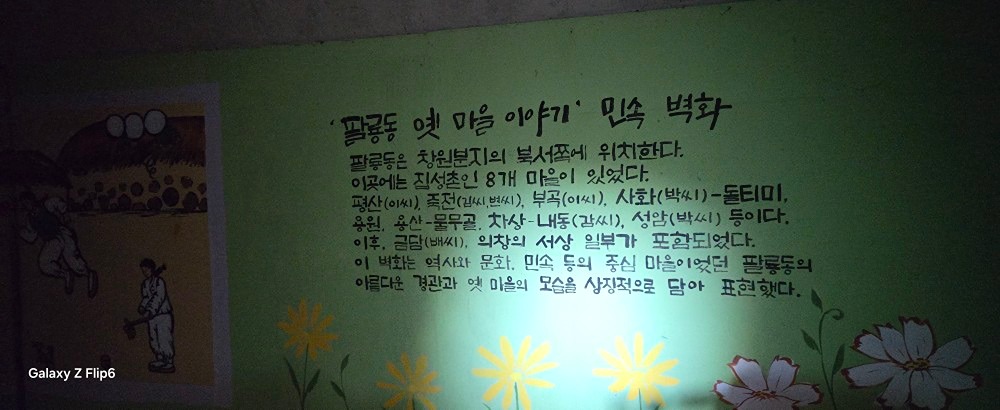 '팔룡동 옛 마을 이야기' 민속 벽화
팔룡동은 창원분지의 북서쪽에 위치한다.
이곳에는 집성촌인 8개 마을이 있었다.
평산(이씨), 죽전(김씨,변씨), 부곡(이씨), 사화(박씨)-돌티미,
용원, 용산-물무골, 차상-내동(감씨), 성암(박씨) 등이다.
이후, 금담(배씨), 의창의 서상 일부가 포함되었다.
이 벽화는 역사와 문화, 민속 등의 중심 마을이었던 팔룡동의
아름다운 경관과 옛 마을의 모습을 상징적으로 담아 표현했다.
Galaxy Z Flip6